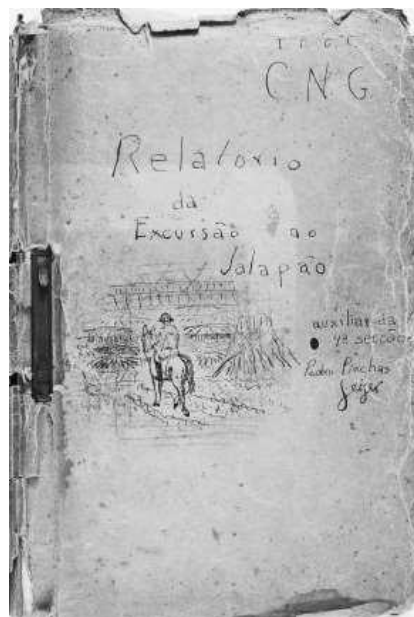 I B G E
C.N.G.
Relatorio
da
Excursão ao
Jalapão
auxiliar da
4ª secção
Pedro Pinchas
Geiger